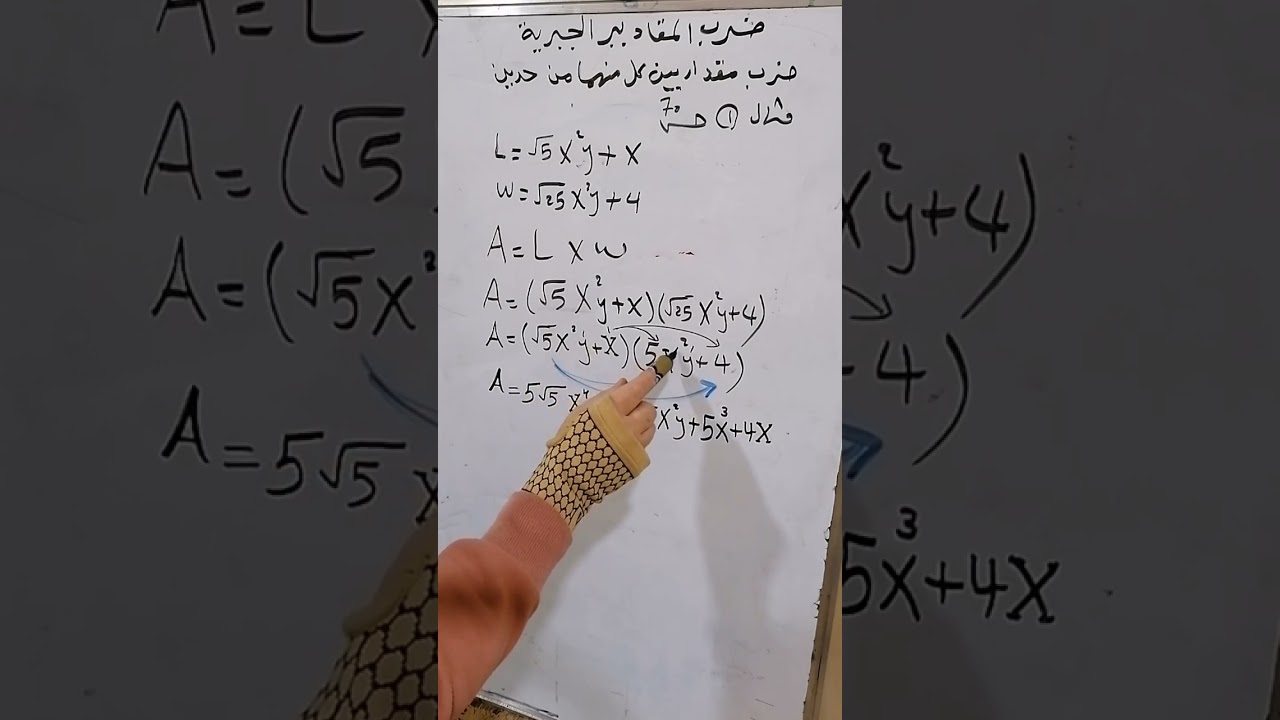 ضرب المقادير الجبرية
ضرب مقداريين كل منهما من حدين
مثال ① ص 70
L = √5 x²y + x
W = √25 x²y + 4
A = L × W
A = (√5 x²y + x)(√25 x²y + 4)
A = (√5 x²y + x)(5x²y + 4)
A = 5√5 x⁴ x²y + 5x³ + 4x